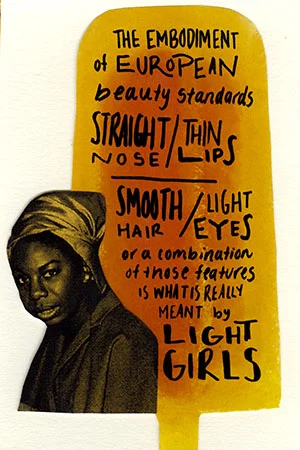 THE EMBODIMENT
of EUROPEAN
beauty standards
STRAIGHT/THIN
NOSE/LIPS
SMOOTH/LIGHT
HAIR/EYES
or a combination
of those features
IS WHAT IS REALLY
MEANT by
LIGHT
GIRLS